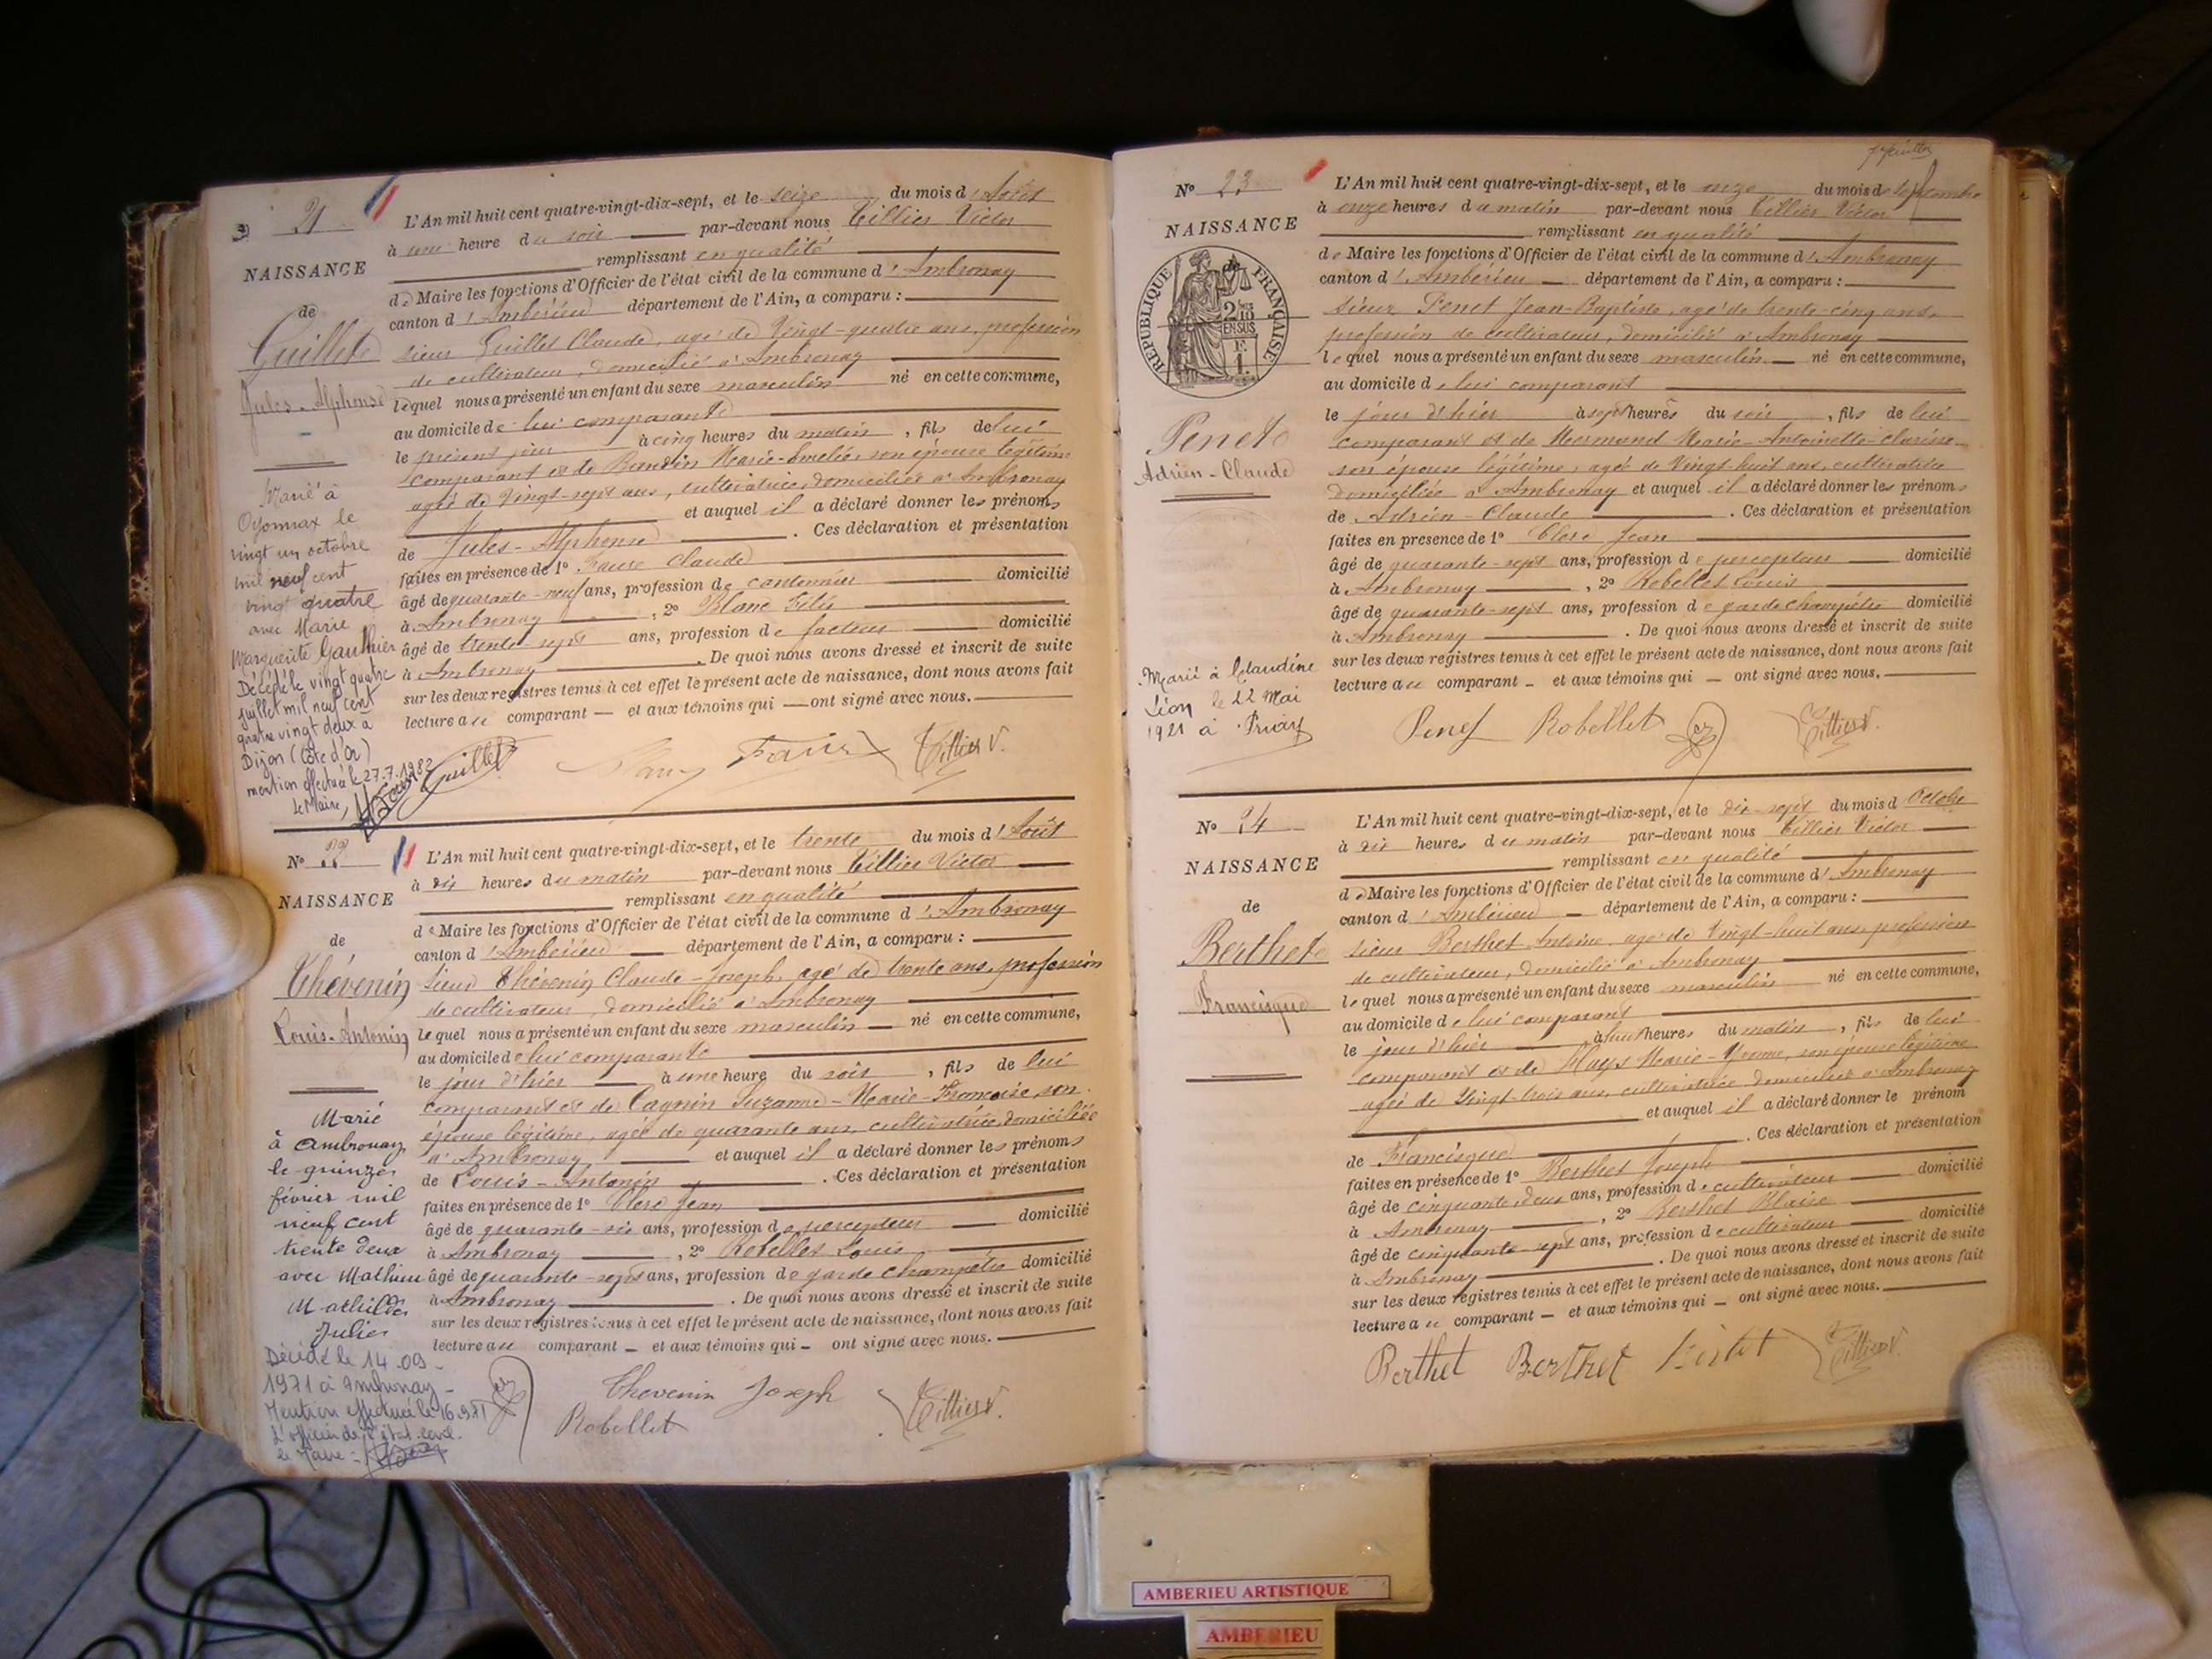 21
NAISSANCE
de
Guillet
Jules-Alphonse
Marié à
Oyonnax le
vingt un octobre
mil neuf cent
vingt quatre
avec Marie
Marguerite Gauthier
Décédé le vingt quatre
juillet mil neuf cent
quatre vingt deux à
Dijon (Côte d'Or)
mention effectuée le 27.7.1982
Le Maire,
L'An mil huit cent quatre-vingt-dix-sept, et le seize du mois d'Août
à une heure du soir par-devant nous Tillier Victor
remplissant en qualité
de Maire les fonctions d'Officier de l'état civil de la commune d'Ambronay
canton d'Ambérieu département de l'Ain, a comparu :
sieur Guillet Claude, agé de Vingt-quatre ans, profession
de cultivateur, domicilié à Ambronay
lequel nous a présenté un enfant du sexe masculin né en cette commune,
au domicile de lui comparant
le présent jour à cinq heures du matin, fils de lui
comparant et de Baudin Marie-Emelie, son épouse légitime
agée de Vingt-sept ans, cultivatrice, domiciliée à Ambronay
et auquel il a déclaré donner les prénoms
de Jules-Alphonse. Ces déclaration et présentation
faites en présence de 1° Faure Claude
âgé de quarante-neuf ans, profession de cantonnier domicilié
à Ambronay, 2° Blanc Félix
âgé de trente-sept ans, profession de facteur domicilié
à Ambronay. De quoi nous avons dressé et inscrit de suite
sur les deux registres tenus à cet effet le présent acte de naissance, dont nous avons fait
lecture au comparant et aux témoins qui ont signé avec nous.
Guillet Faure Tillier V.
N° 22
NAISSANCE
de
Thévenin
Louis-Antonin
Marié
à Ambronay
le quinze
février mil
neuf cent
trente deux
avec Mathieu
Mathilde
Julie
Décédé le 14-09-
1971 à Ambronay-
Mention effectuée le 16.9.71
L'officier de l'état-civil
le Maire-
L'An mil huit cent quatre-vingt-dix-sept, et le trente du mois d'Août
à dix heures du matin par-devant nous Tillier Victor
remplissant en qualité
de Maire les fonctions d'Officier de l'état civil de la commune d'Ambronay
canton d'Ambérieu département de l'Ain, a comparu :
sieur Thévenin Claude-Joseph, agé de trente ans, profession
de cultivateur, domicilié à Ambronay
lequel nous a présenté un enfant du sexe masculin né en cette commune,
au domicile de lui comparant
le jour d'hier à une heure du soir, fils de lui
comparant et de Cagnin Suzanne-Marie-Françoise, son
épouse légitime, agée de quarante ans, cultivatrice, domiciliée
à Ambronay et auquel il a déclaré donner les prénoms
de Louis-Antonin. Ces déclaration et présentation
faites en présence de 1° Clerc Jean
âgé de quarante-six ans, profession de percepteur domicilié
à Ambronay, 2° Robellet Louis
âgé de quarante-sept ans, profession de garde champêtre domicilié
à Ambronay. De quoi nous avons dressé et inscrit de suite
sur les deux registres tenus à cet effet le présent acte de naissance, dont nous avons fait
lecture au comparant et aux témoins qui ont signé avec nous.
Thevenin Joseph Tillier V.
Robellet
N° 23
NAISSANCE
de
RÉPUBLIQUE FRANÇAISE
2/10 EN SUS
Penet
Adrien-Claude
Marié à Claudine
Léon le 22 Mai
1921 à Priay
L'An mil huit cent quatre-vingt-dix-sept, et le onze du mois de septembre
à onze heures du matin par-devant nous Tillier Victor
remplissant en qualité
de Maire les fonctions d'Officier de l'état civil de la commune d'Ambronay
canton d'Ambérieu département de l'Ain, a comparu :
sieur Penet Jean-Baptiste, agé de trente-cinq ans,
profession de cultivateur, domicilié à Ambronay
lequel nous a présenté un enfant du sexe masculin né en cette commune,
au domicile de lui comparant
le jour d'hier à sept heures du soir, fils de lui
comparant et de Mermand Marie-Antoinette-Clarisse
son épouse légitime, agée de Vingt-huit ans, cultivatrice
domiciliée à Ambronay et auquel il a déclaré donner les prénoms
de Adrien-Claude. Ces déclaration et présentation
faites en présence de 1° Clerc Jean
âgé de quarante-sept ans, profession de percepteur domicilié
à Ambronay, 2° Robellet Louis
âgé de quarante-sept ans, profession de garde champêtre domicilié
à Ambronay. De quoi nous avons dressé et inscrit de suite
sur les deux registres tenus à cet effet le présent acte de naissance, dont nous avons fait
lecture au comparant et aux témoins qui ont signé avec nous.
Penet Robellet Tillier V.
N° 24
NAISSANCE
de
Berthet
Francisque
L'An mil huit cent quatre-vingt-dix-sept, et le dix-sept du mois d'Octobre
à dix heures du matin par-devant nous Tillier Victor
remplissant en qualité
de Maire les fonctions d'Officier de l'état civil de la commune d'Ambronay
canton d'Ambérieu département de l'Ain, a comparu :
sieur Berthet Antoine, agé de Vingt-huit ans, profession
de cultivateur, domicilié à Ambronay
lequel nous a présenté un enfant du sexe masculin né en cette commune,
au domicile de lui comparant
le jour d'hier à huit heures du matin, fils de lui
comparant et de Marie-Yvonne, son épouse légitime
agée de Vingt-trois ans, cultivatrice domiciliée à Ambronay
et auquel il a déclaré donner le prénom
de Francisque. Ces déclaration et présentation
faites en présence de 1° Berthet Joseph
âgé de cinquante-deux ans, profession de cultivateur domicilié
à Ambronay, 2° Berthet Blaise
âgé de cinquante-sept ans, profession de cultivateur domicilié
à Ambronay. De quoi nous avons dressé et inscrit de suite
sur les deux registres tenus à cet effet le présent acte de naissance, dont nous avons fait
lecture au comparant et aux témoins qui ont signé avec nous.
Berthet Berthet Tillier V.
AMBERIEU ARTISTIQUE
AMBERIEU